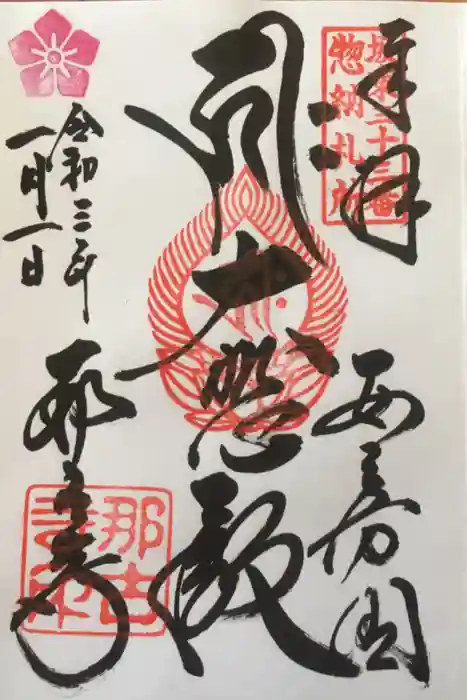 奉拝
坂東三十三番
惣納札所
安房国
大悲殿
那古寺
令和三年
一月一日
那古寺印